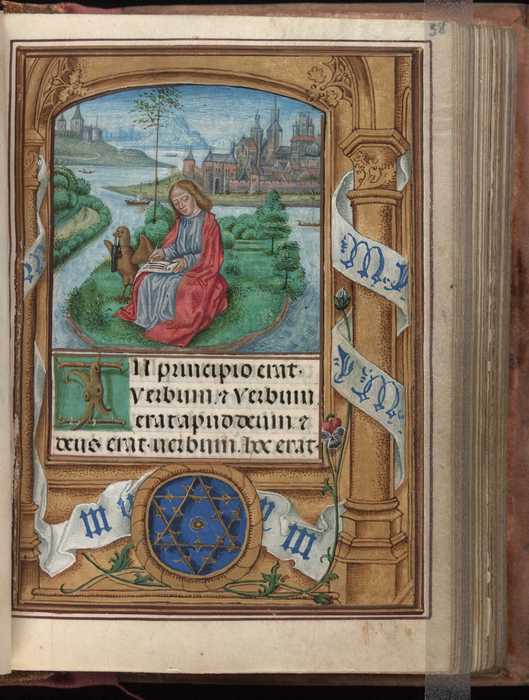 38
In principio erat·
verbum, ⁊ verbum
erat apud deum, ⁊
deus erat· uerbum. hoc erat·